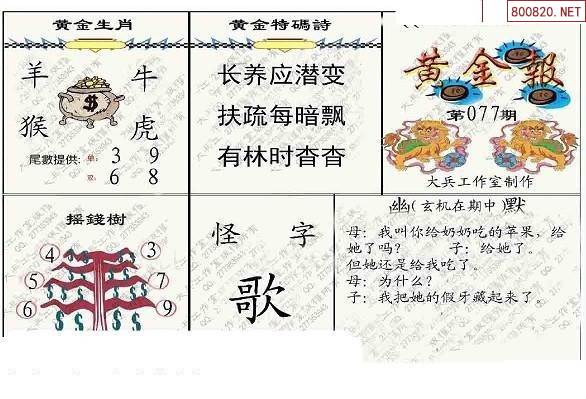 800820.NET
黄金生肖
羊 牛
猴 虎
尾數提供: 单: 3 9
双: 6 8
黄金特碼詩
长养应潜变
扶疏每暗飘
有林时杳杳
黄金報
第077期
大兵工作室制作
摇錢樹
4 3
5 7
6 9
怪 字
歌
幽(玄机在期中)默
母: 我叫你给奶奶吃的苹果, 给
她了吗? 子: 给她了。
但她还是给我吃了。
母: 为什么?
子: 我把她的假牙藏起来了。